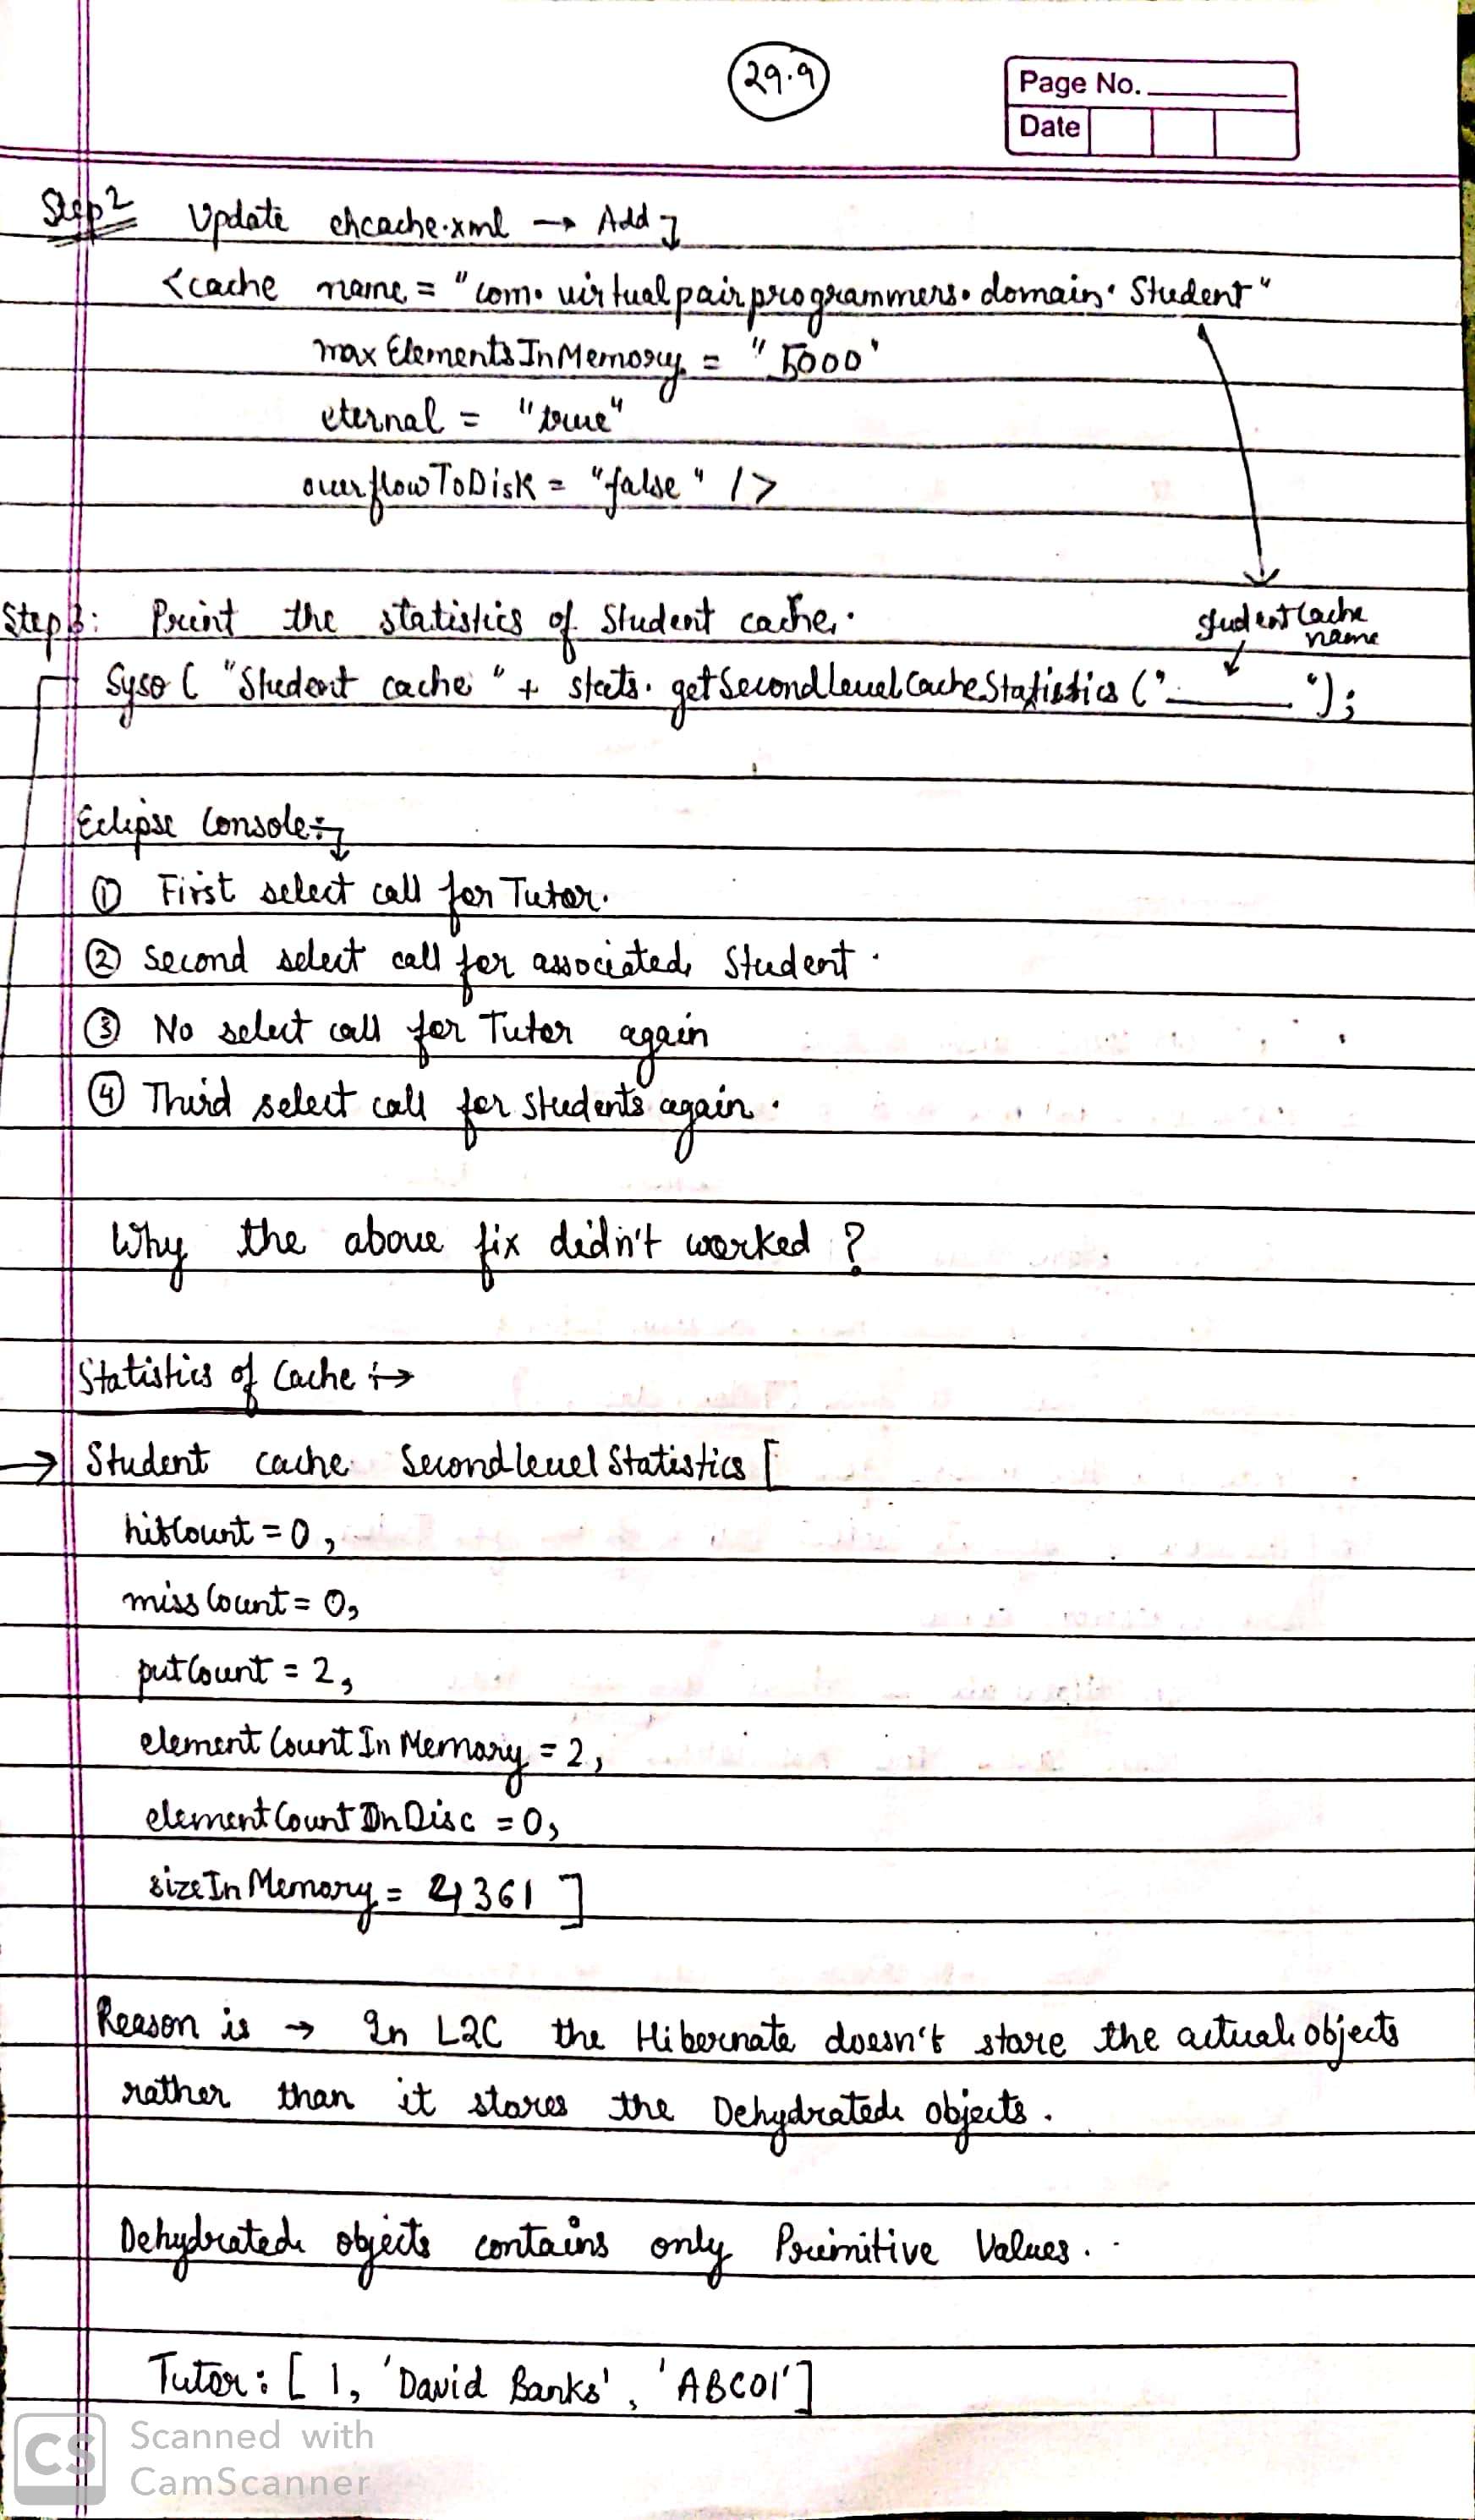 29.9
Page No.
Date
Step 2 Update ehcache.xml → Add ↴
<cache name = "com.virtualpairprogrammers.domain.Student"
maxElementsInMemory = "5000"
eternal = "true"
overflowToDisk = "false" />
Step 3: Print the statistics of Student cache.
student cache
name
Syso ( "Student cache " + stats.getSecondLevelCacheStatistics ("______");
Eclipse Console:
① First select call for Tutor.
② Second select call for associated Student.
③ No select call for Tutor again
④ Third select call for students again.
Why the above fix didn't worked ?
Statistics of Cache :→
→ Student cache SecondlevelStatistics [
hitCount = 0,
missCount = 0,
putCount = 2,
elementCountInMemory = 2,
elementCountOnDisc = 0,
sizeInMemory = 4361 ]
Reason is → In L2C the Hibernate doesn't store the actual objects
rather than it stores the Dehydrated objects.
Dehydrated objects contains only Primitive Values.
Tutor : [ 1, 'David Banks', 'ABC01']
CS Scanned with
CamScanner